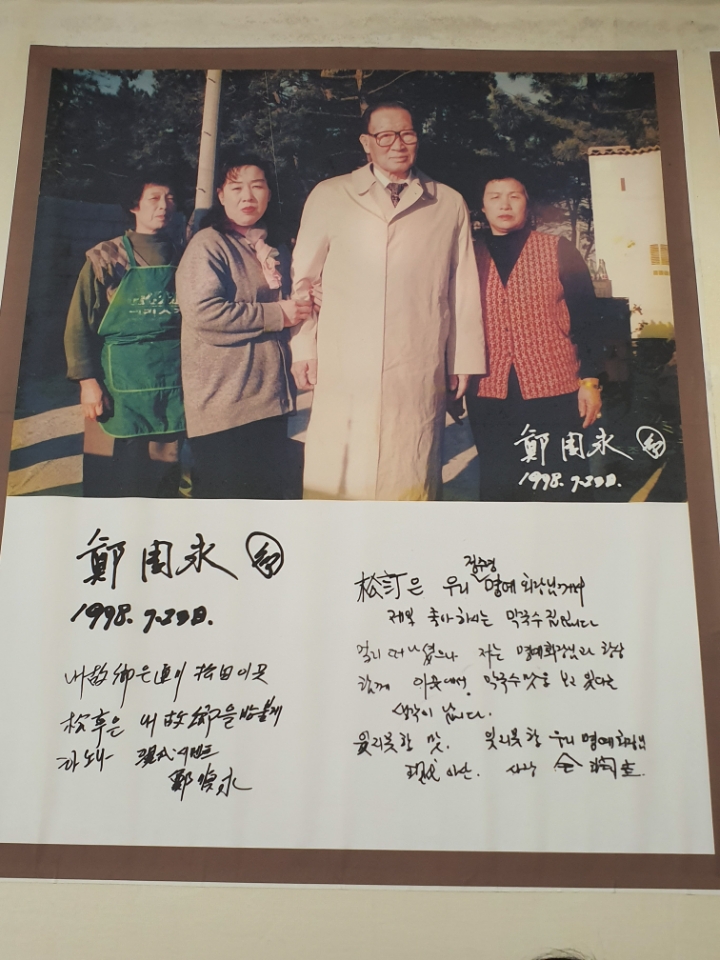 鄭周永
1998. 7. 23日.
鄭周永
1998. 7. 23日.
내 故鄕은 通川 松田이곳
은 내 故鄕을
하노라
鄭 永
정주영
松 은 우리 명예회장님께서
제일 좋아하시는 막국수집입니다
멀리 떠나셨으나 저는 명예회장님과 항상
함께 이곳에서 막국수맛을 보고 있다는
생각이 납니다.
잊지못할 맛. 잊지못할 우리 명예회장님
現代아산. 사장 金